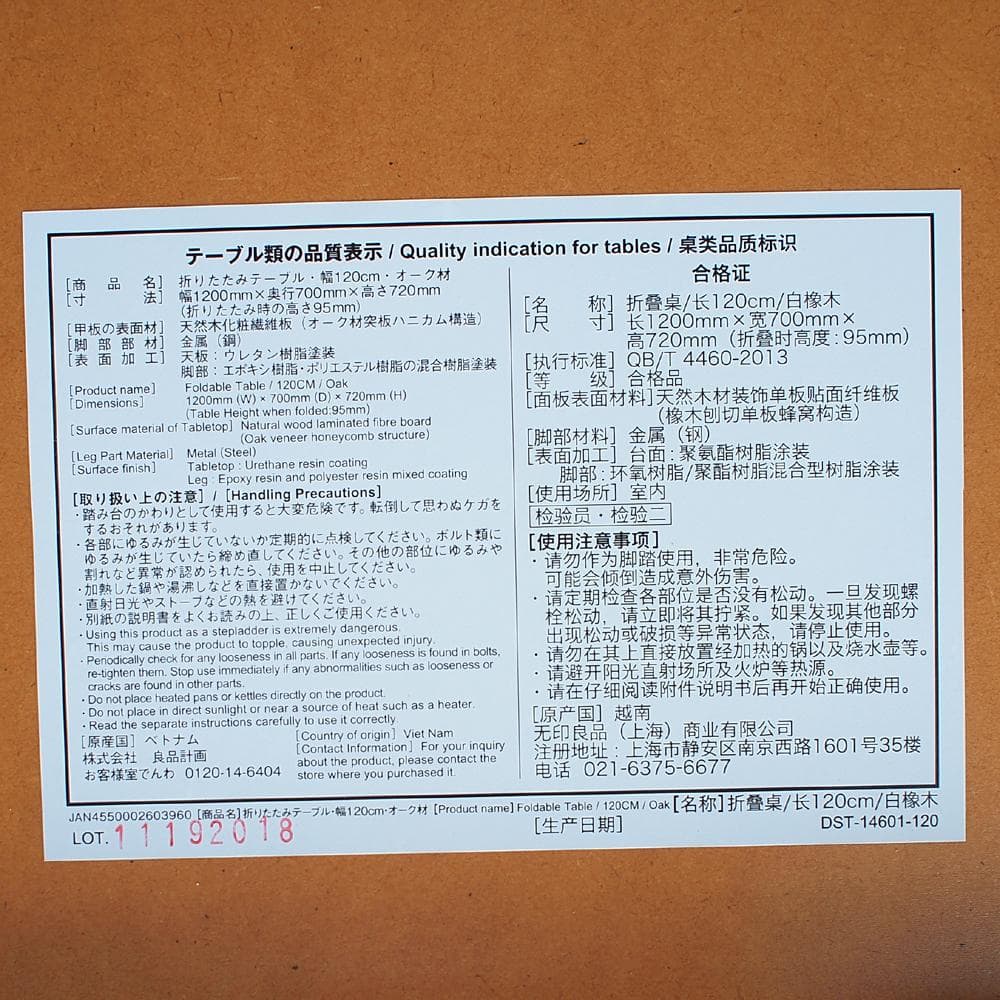 テーブル類の品質表示 / Quality indication for tables / 桌类品质标识
[商品名] 折りたたみテーブル・幅120cm・オーク材
[寸法] 幅1200mm×奥行700mm×高さ720mm
(折りたたみ時の高さ95mm)
[甲板の表面材] 天然木化粧繊維板 (オーク材突板ハニカム構造)
[脚部部材] 金属 (鋼)
[表面加工] 天板:ウレタン樹脂塗装
脚部:エポキシ樹脂・ポリエステル樹脂の混合樹脂塗装
[Product name] Foldable Table / 120CM / Oak
[Dimensions] 1200mm (W) × 700mm (D) × 720mm (H)
(Table Height when folded:95mm)
[Surface material of Tabletop] Natural wood laminated fibre board
(Oak veneer honeycomb structure)
[Leg Part Material] Metal (Steel)
[Surface finish] Tabletop : Urethane resin coating
Leg : Epoxy resin and polyester resin mixed coating
[取り扱い上の注意] / [Handling Precautions]
・踏み台のかわりとして使用すると大変危険です。転倒して思わぬケガを
するおそれがあります。
・各部にゆるみが生じていないか定期的に点検してください。ボルト類に
ゆるみが生じていたら締め直してください。その他の部位にゆるみや
割れなど異常が認められたら、使用を中止してください。
・加熱した鍋や湯沸しなどを直接置かないでください。
・直射日光やストーブなどの熱を避けてください。
・別紙の説明書をよくお読みの上、正しくご使用ください。
・Using this product as a stepladder is extremely dangerous.
This may cause the product to topple, causing unexpected injury.
・Periodically check for any looseness in all parts. If any looseness is found in bolts,
re-tighten them. Stop use immediately if any abnormalities such as looseness or
cracks are found in other parts.
・Do not place heated pans or kettles directly on the product.
・Do not place in direct sunlight or near a source of heat such as a heater.
・Read the separate instructions carefully to use it correctly.
[原産国] ベトナム
株式会社 良品計画
お客様室でんわ 0120-14-6404
[Country of origin] Viet Nam
[Contact Information] For your inquiry
about the product, please contact the
store where you purchased it.
合格证
[名称] 折叠桌/长120cm/白橡木
[尺寸] 长1200mm×宽700mm×
高720mm (折叠时高度:95mm)
[执行标准] QB/T 4460-2013
[等级] 合格品
[面板表面材料]天然木材装饰单板贴面纤维板
(橡木刨切单板蜂窝构造)
[脚部材料] 金属 (钢)
[表面加工] 台面:聚氨酯树脂涂装
脚部:环氧树脂/聚酯树脂混合型树脂涂装
[使用场所] 室内
检验员・检验二
[使用注意事项]
・请勿作为脚踏使用,非常危险。
可能会倾倒造成意外伤害。
・请定期检查各部位是否没有松动。一旦发现螺
栓松动,请立即将其拧紧。如果发现其他部分
出现松动或破损等异常状态,请停止使用。
・请勿在其上直接放置经加热的锅以及烧水壶等。
・请避开阳光直射场所及火炉等热源。
・请在仔细阅读附件说明书后再开始正确使用。
[原产国] 越南
无印良品(上海)商业有限公司
注册地址:上海市静安区南京西路1601号35楼
电话 021-6375-6677
JAN4550002603960 [商品名]折りたたみテーブル・幅120cm・オーク材 [Product name] Foldable Table / 120CM / Oak [名称]折叠桌/长120cm/白橡木
LOT. 11192018 [生产日期] DST-14601-120